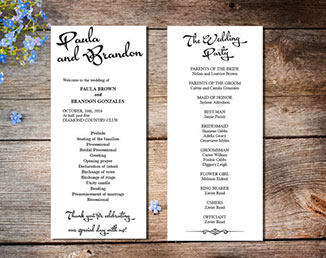 Paula
and Brandon
Welcome to the wedding of
PAULA BROWN
and
BRANDON GONZALES
OCTOBER, 16th, 2016
At half past five
DIAMOND COUNTRY CLUB
Prelude
Seating of the families
Processional
Bridal Processional
Greeting
Opening prayer
Declaration of intent
Exchange of vows
Exchange of rings
Unity candle
Reading
Pronouncement of marriage
Recessional
Thank you for celebrating
our special day with us!
The Wedding
Party
PARENTS OF THE BRIDE
Nolan and Leatrice Brown
PARENTS OF THE GROOM
Calvin and Camala Gonzales
MAID OF HONOR
Joylene Alfredson
BEST MAN
Jamie Parish
BRIDESMAID
Shannon Gibbs
Adelia Geary
Genevieve Myles
GROOMSMAN
Carter Wilkins
Freddie Gibbs
Diggory Leigh
FLOWER GIRL
Melanie Eldred
RING BEARER
Xavier Read
USHERS
Xavier Read
OFFICIANT
Xavier Read